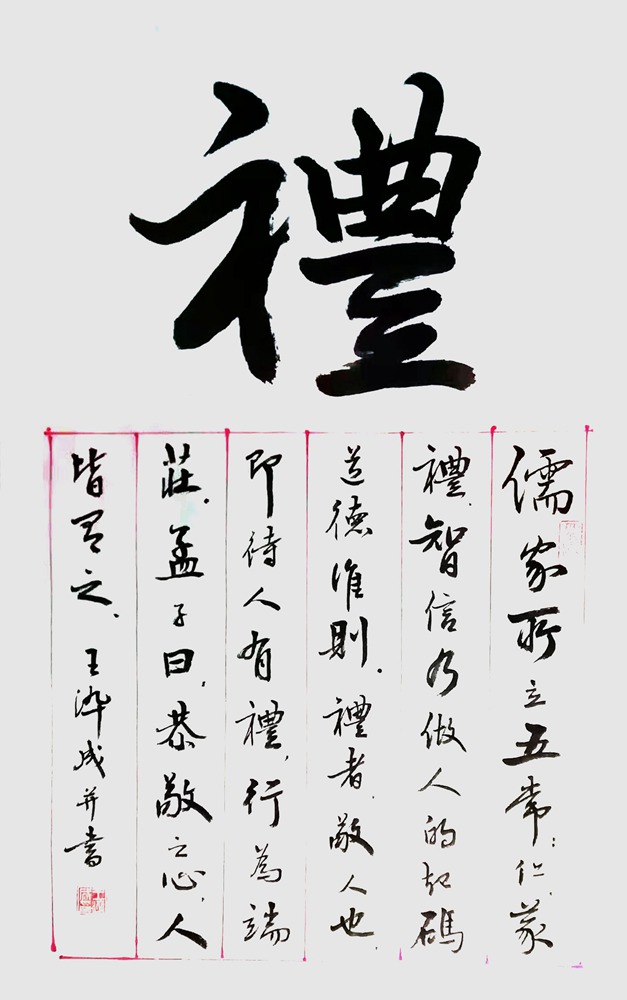 禮
儒家所立五常：仁、義
禮、智信乃做人的起碼
道德准則。禮者，敬人也，
即待人有禮，行為端
莊。孟子曰，恭敬之心，人
皆有之。王成并書